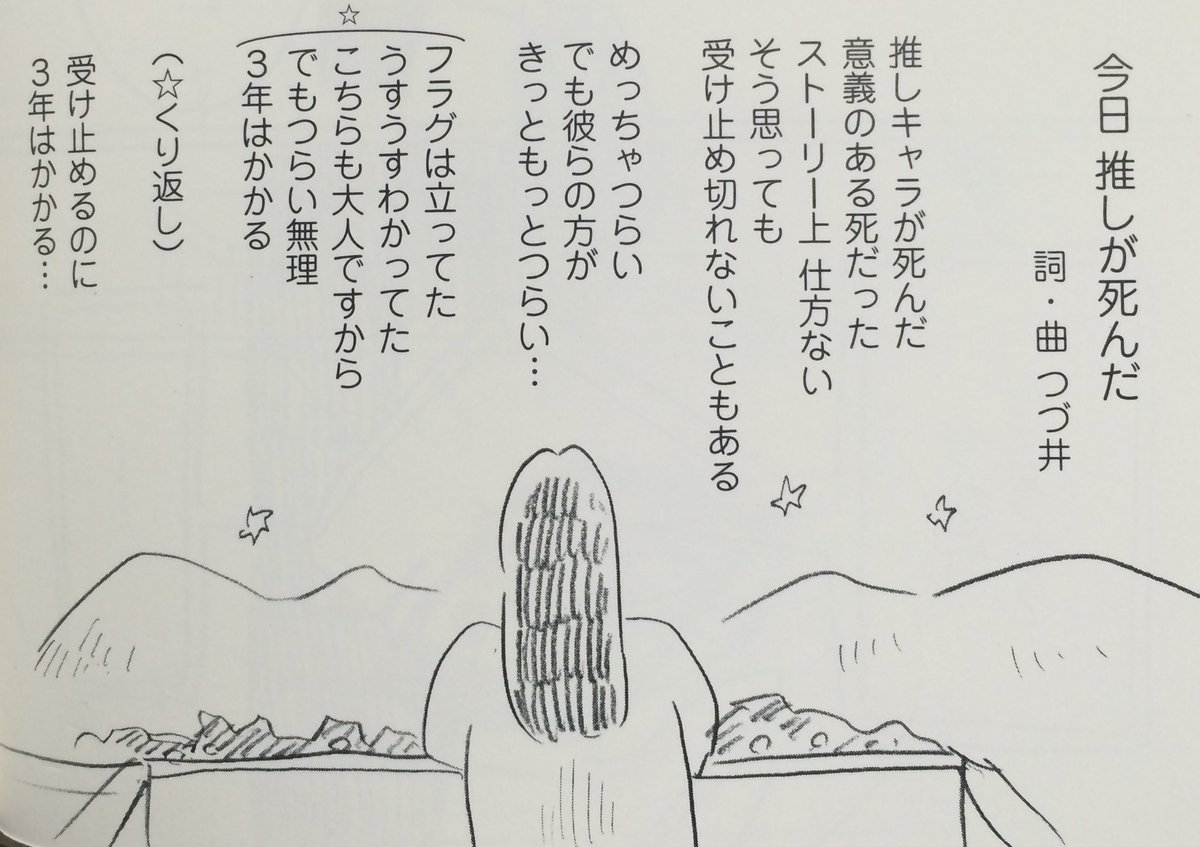 今日 推しが死んだ
詞・曲 つづ井
推しキャラが死んだ
意義のある死だった
ストーリー上 仕方ない
そう思っても
受け止め切れないこともある
めっちゃつらい
でも彼らの方が
きっともっとつらい…
☆
フラグは立ってた
うすうすわかってた
こちらも大人ですから
でもつらい無理
3年はかかる
(☆くり返し)
受け止めるのに
3年はかかる…